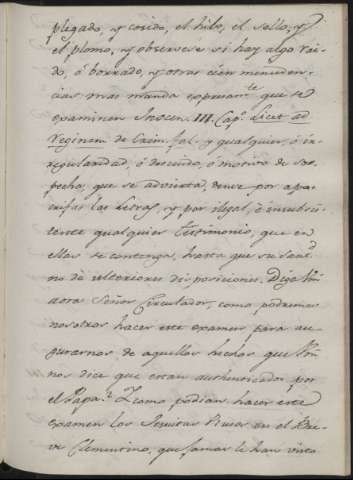 plegado, y cosido, el hilo, el sello, y
el plomo, y observese si hay algo rai-
do, ó borrado, y otras cien menuden-
cias mas manda expresamte que se
examinen Inocen. III. Cap. Licet ad
Reginem de Crim. fal. y qualquier, ó ir-
regularidad, ó descuido, ó motivo de sos-
pecha, que se advierta, tener por apo-
crifas las Letras, y por ilegal, è insubsis-
tente qualquier testimonio, que en
ellas se contenga, hasta que su Santd
no dè ulteriores disposiciones. Diga Vm
aora Señor Circulador, como podremos
nosotros hacer este examen para ase-
gurarnos de aquellos hechos que Vm
nos dice que estan authenticados por
el Papa? Y como podian hacer este
examen los Jesuitas Rusos en el Bre-
ve Clementino, que jamas le han visto